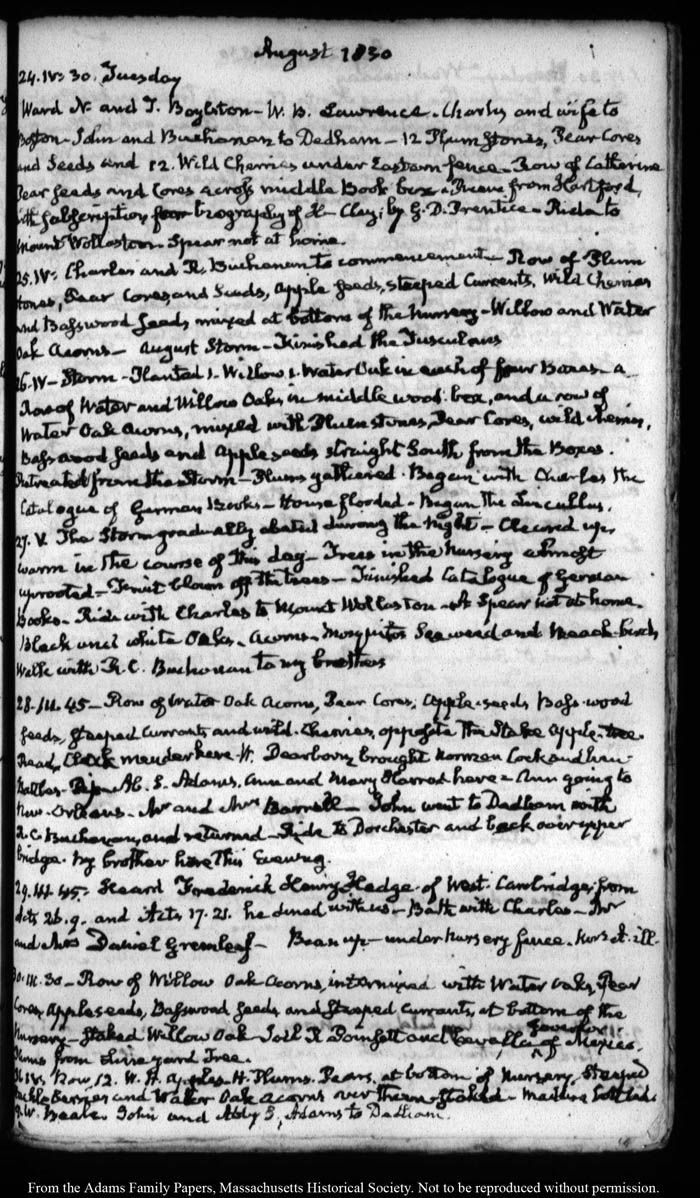 August 1830
24. IV:30. Tuesday
Ward N. and T. Boylston - W. B. Lawrence. Charles and wife to
Boston - John and Buchanan to Dedham - 12 Plum Stones, Pear Cores
and Seeds and 12. Wild Cherries under Eastern fence - Row of Catherine
Pear seeds and Cores across middle Book box - from Hartford,
with Subscription for biography of H- Clay, by G. D. Prentice - Ride to
Mount Wollaston - Spear not at home.
25. IV: Charles and R. Buchanan to commencement - Row of Plum
stones, Pear Cores, and Seeds, Apple seeds, steeped Currants, Wild Cherries
and Basswood seeds mixed at bottom of the Nursery - Willow and Water
Oak Acorns - August Storm - Finished the Tusculans
26. IV - Storm - Planted 1. Willow 1. Water Oak in each of four Boxes - a
Row of Water and Willow Oaks in middle wood box, and a row of
Water Oak Acorns, mixed with Plum stones, Pear Cores, wild cherries,
Basswood seeds and Apple seeds straight South from the Boxes.
Retreated from the Storm - Plums gathered. Began with Charles the
Catalogue of German Books - House flooded - Began the Lucullus.
27. V. The Storm gradually abated during the night - Cleared up,
warm in the course of this day - Trees in the Nursery almost
uprooted - Fruit blown off the trees - Finished Catalogue of German
Books - Ride with Charles to Mount Wollaston - Spear not at home.
Black and white Oaks - Acorns - Mosquitos Seaweed and beach
Walk with R. C. Buchanan to my brothers
28. III. 45 - Row of Water Oak Acorns, Pear Cores, Apple-seeds Bass-wood
seeds, steeped Currants and wild Cherries, opposite the Stake Apple-tree
H. Dearborn, brought
Adams, Ann and Mary Harrod here - Ann going to
New-Orleans - Mr and Mrs Barrell - John went to Dedham with
R. C. Buchanan, and returned - Ride to Dorchester and back over upper
bridge. My brother here this Evening.
29. III. 45. Heard Frederick Henry Hedge of West Cambridge, from
Acts 26. 9. and Acts 17. 21. he dined with us - Bath with Charles - Mr
and Mrs Daniel Greenleaf - Bean up - under nursery fence. ill.
30. III. 30 - Row of Willow Oak Acorns, intermixed with Water Oaks, Pear
Cores, Apple seeds, Basswood seeds and steeped currants, at bottom of the
Nursery - Staked Willow Oak J. R. Poinsett and Governor of Mexico.
Plums from tree.
31. IV. Row, 12. W. H. apples. H. Plums. Pears, at bottom of Nursery, Steeped
Berries and Water Oak acorns over them - Staked -
G. W. Beale. John and Abby S. Adams to Dedham.
From the Adams Family Papers, Massachusetts Historical Society. Not to be reproduced without permission.